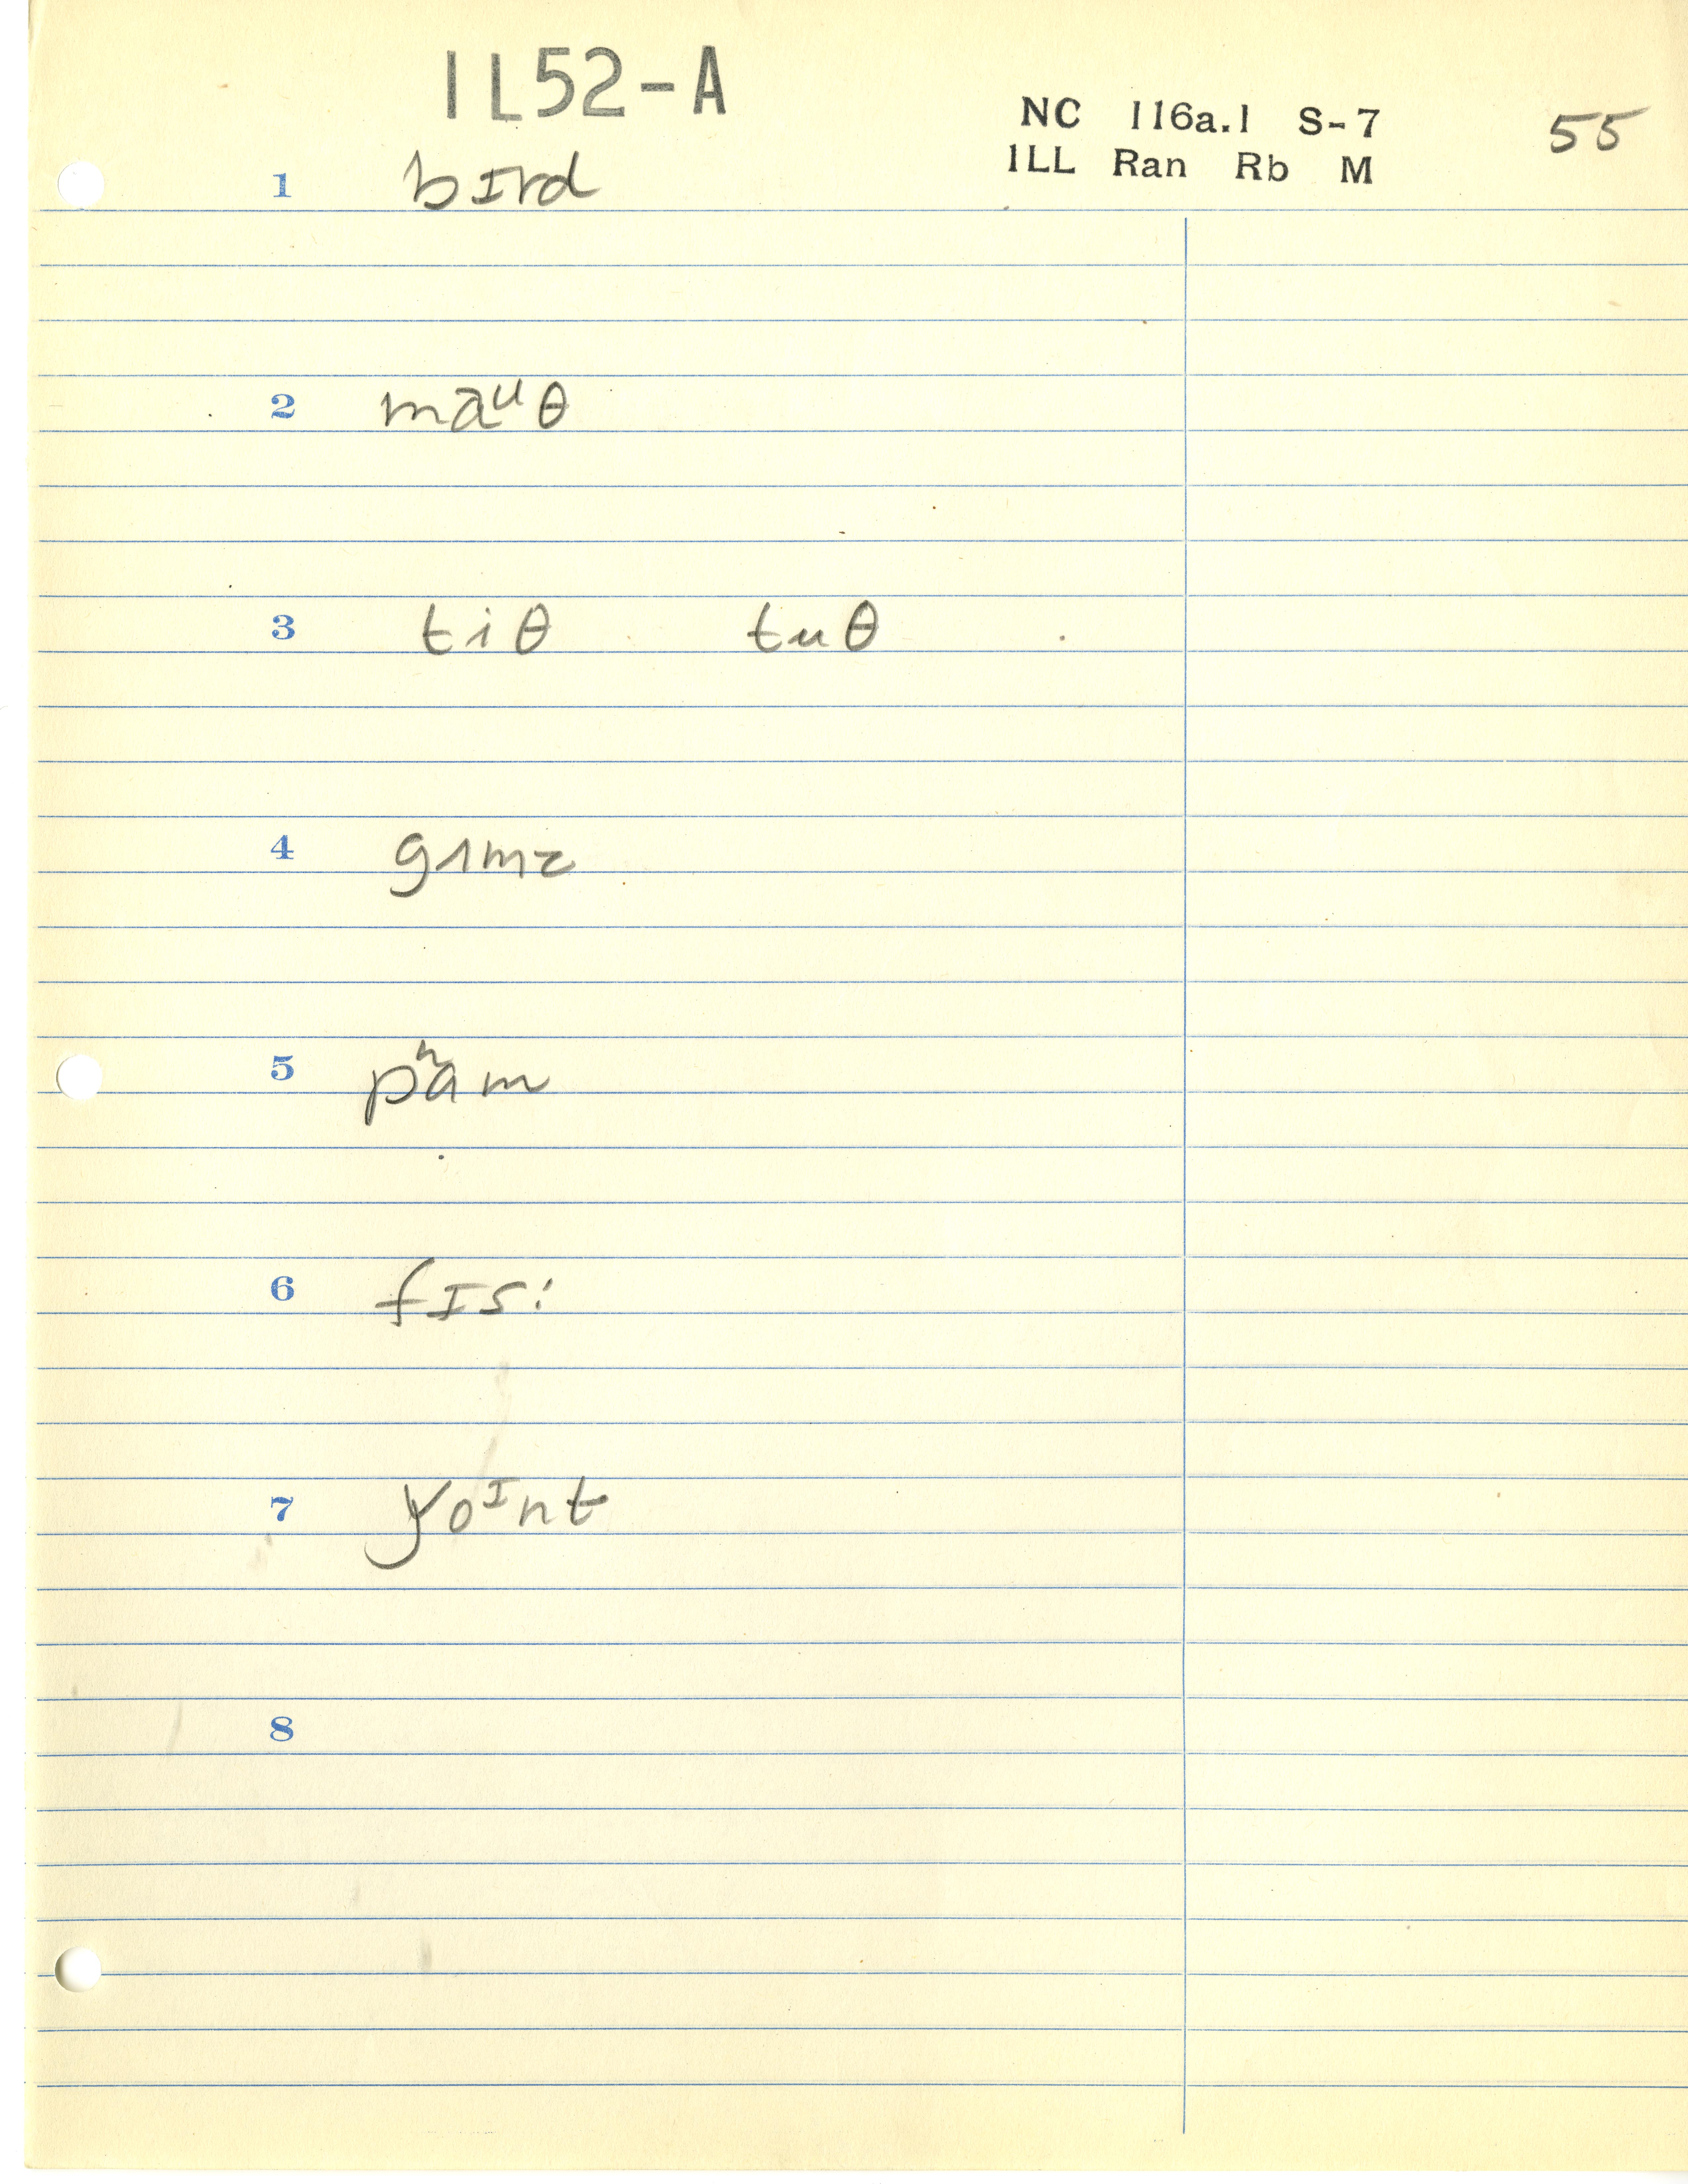 1L52-A
NC 116a.1 S-7 55
1LL Ran Rb M
1 bɪrd
2 maᶷθ
3 tiθ tuθ
4 gʌmz
5 pʰam
6 fɪs:
7 ɣoᶦnt
8